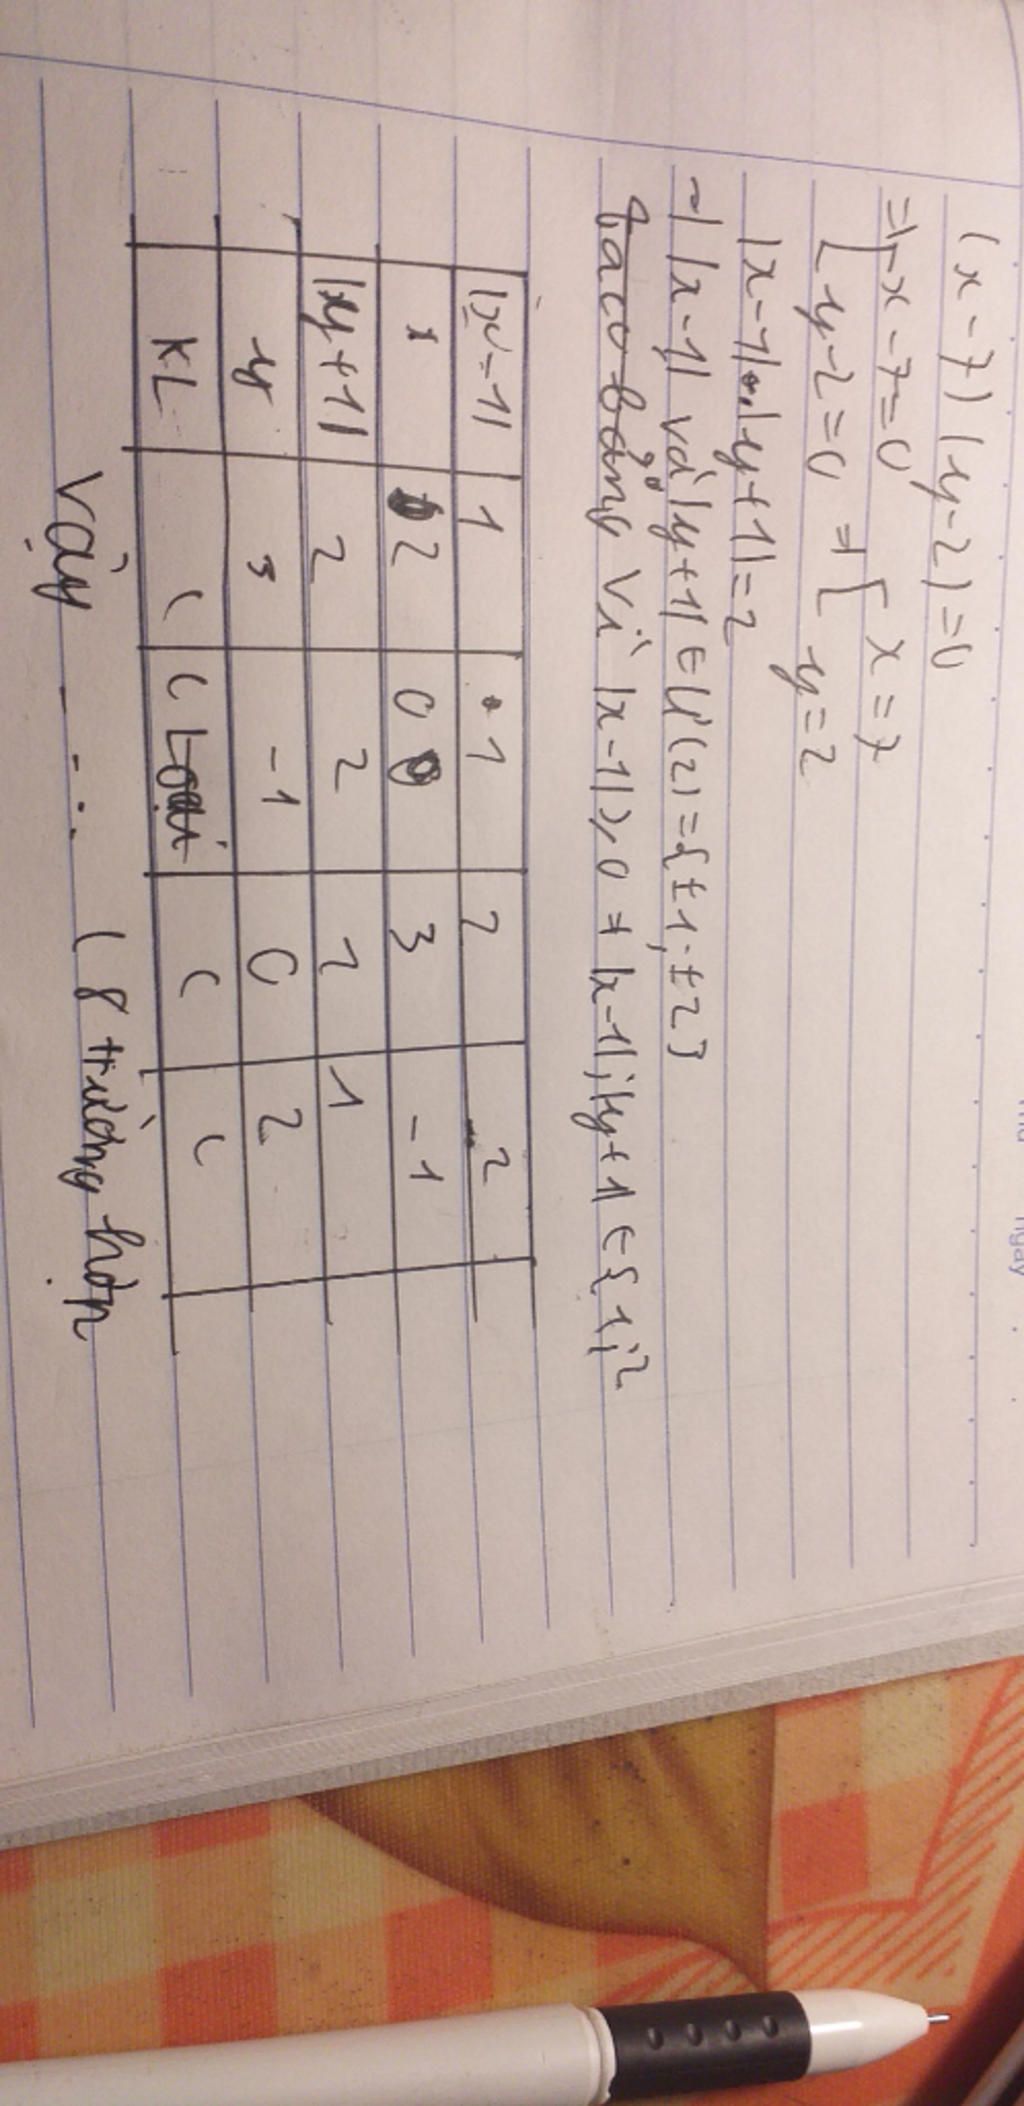 Thứ ngày
(x-7)(y-2)=0
=> [ x-7=0
[ y-2=0 => [ x=7
y=2
|x-1|.|y+1|=2
=> |x-1| và |y+1| ∈ Ư(2)={±1;±2}
Ta có bảng Vì |x-1|≥0 => |x-1|;|y+1| ∈ {1;2
|x-1| 1 1 2 2
x 2 0 3 -1
|y+1| 2 2 1 1
y 3 -1 0 2
KL C C Loại C C
Vậy - - .. (8 trường hợp